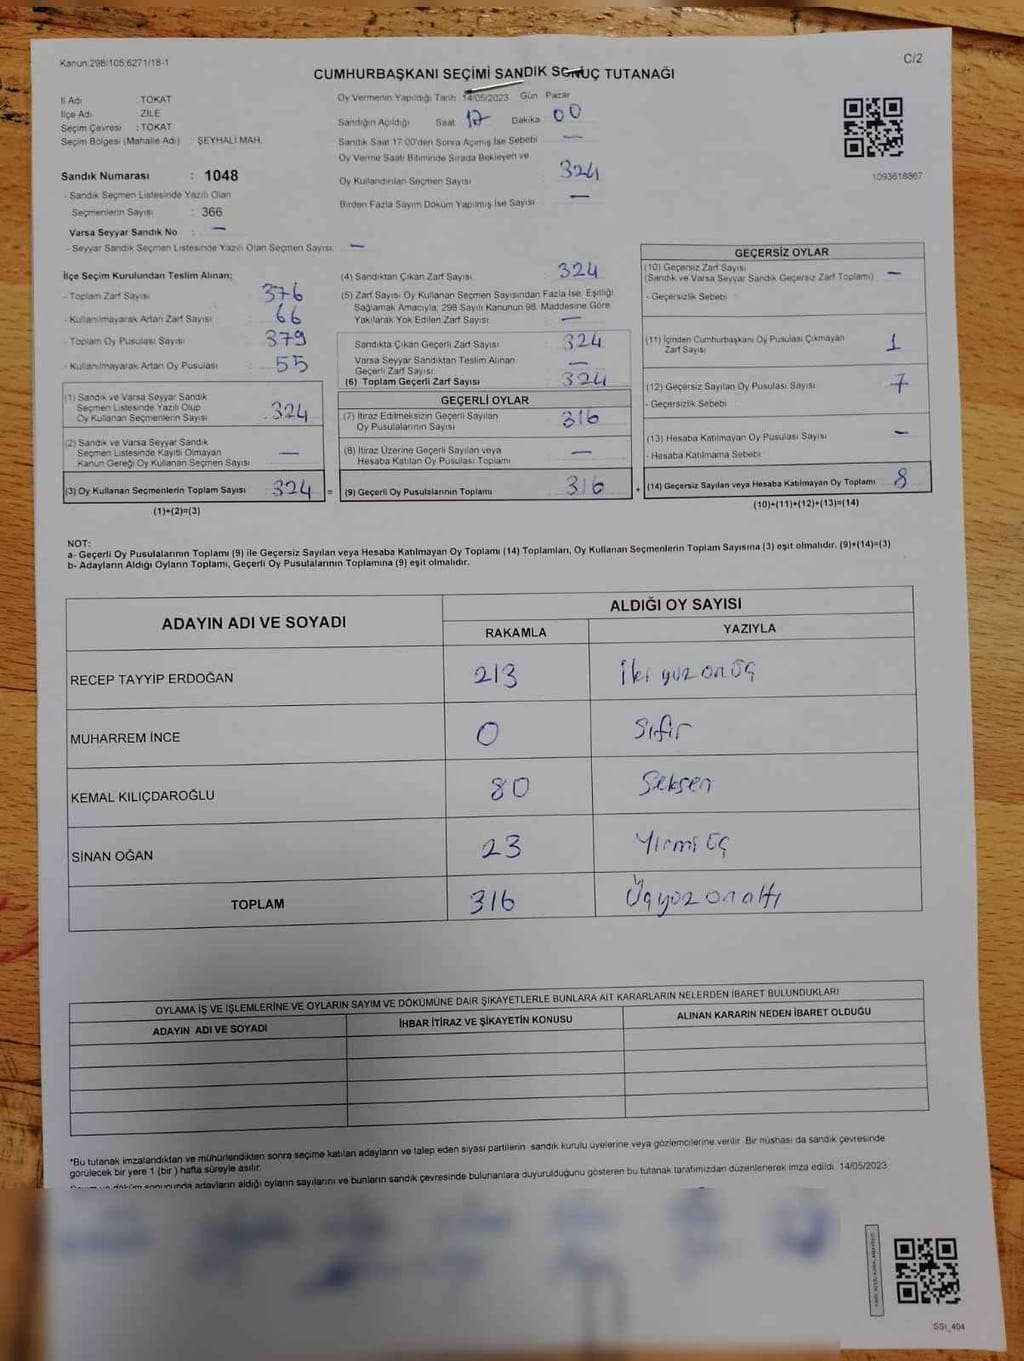 Kanun:298/105,6271/18-1
C/2
CUMHURBAŞKANI SEÇİMİ SANDIK SONUÇ TUTANAĞI
İl Adı : TOKAT
İlçe Adı : ZİLE
Seçim Çevresi : TOKAT
Seçim Bölgesi (Mahalle Adı) : ŞEYHALİ MAH.
Oy Vermenin Yapıldığı Tarih 14/05/2023 Gün Pazar
Sandığın Açıldığı Saat 17 Dakika 00
Sandık Saat 17:00'den Sonra Açımış İse Sebebi —
Oy Verme Saati Bitiminde Sırada Bekleyen ve
Oy Kullandırılan Seçmen Sayısı 324
Birden Fazla Sayım Döküm Yapılmış İse Sayısı —
1093618867
Sandık Numarası : 1048
- Sandık Seçmen Listesinde Yazılı Olan
Seçmenlerin Sayısı : 366
Varsa Seyyar Sandık No : —
- Seyyar Sandık Seçmen Listesinde Yazılı Olan Seçmen Sayısı: —
İlçe Seçim Kurulundan Teslim Alınan;
- Toplam Zarf Sayısı : 376
- Kullanılmayarak Artan Zarf Sayısı : 66
- Toplam Oy Pusulası Sayısı : 379
- Kullanılmayarak Artan Oy Pusulası : 55
(1) Sandık ve Varsa Seyyar Sandık
Seçmen Listesinde Yazılı Olup
Oy Kullanan Seçmenlerin Sayısı : 324
(2) Sandık ve Varsa Seyyar Sandık
Seçmen Listesinde Kayıtlı Olmayan
Kanun Gereği Oy Kullanan Seçmen Sayısı —
(3) Oy Kullanan Seçmenlerin Toplam Sayısı 324 =
(1)+(2)=(3)
(4) Sandıktan Çıkan Zarf Sayısı 324
(5) Zarf Sayısı Oy Kullanan Seçmen Sayısından Fazla İse, Eşitliği
Sağlamak Amacıyla, 298 Sayılı Kanunun 98. Maddesine Göre
Yakılarak Yok Edilen Zarf Sayısı —
Sandıkta Çıkan Geçerli Zarf Sayısı 324
Varsa Seyyar Sandıktan Teslim Alınan
Geçerli Zarf Sayısı —
(6) Toplam Geçerli Zarf Sayısı 324
GEÇERLİ OYLAR
(7) İtiraz Edilmeksizin Geçerli Sayılan
Oy Pusulalarının Sayısı 316
(8) İtiraz Üzerine Geçerli Sayılan veya
Hesaba Katılan Oy Pusulası Toplamı —
(9) Geçerli Oy Pusulalarının Toplamı 316 +
GEÇERSİZ OYLAR
(10) Geçersiz Zarf Sayısı
(Sandık ve Varsa Seyyar Sandık Geçersiz Zarf Toplamı) —
- Geçersizlik Sebebi
(11) İçinden Cumhurbaşkanı Oy Pusulası Çıkmayan
Zarf Sayısı 1
(12) Geçersiz Sayılan Oy Pusulası Sayısı 7
- Geçersizlik Sebebi
(13) Hesaba Katılmayan Oy Pusulası Sayısı —
- Hesaba Katılmama Sebebi
(14) Geçersiz Sayılan veya Hesaba Katılmayan Oy Toplamı 8
(10)+(11)+(12)+(13)=(14)
NOT:
a- Geçerli Oy Pusulalarının Toplamı (9) ile Geçersiz Sayılan veya Hesaba Katılmayan Oy Toplamı (14) Toplamları, Oy Kullanan Seçmenlerin Toplam Sayısına (3) eşit olmalıdır. (9)+(14)=(3)
b- Adayların Aldığı Oyların Toplamı, Geçerli Oy Pusulalarının Toplamına (9) eşit olmalıdır.
ADAYIN ADI VE SOYADI
ALDIĞI OY SAYISI
RAKAMLA YAZIYLA
RECEP TAYYİP ERDOĞAN 213 İki yüz on üç
MUHARREM İNCE 0 Sıfır
KEMAL KILIÇDAROĞLU 80 Seksen
SİNAN OĞAN 23 Yirmi üç
TOPLAM 316 Üçyüz on altı
OYLAMA İŞ VE İŞLEMLERİNE VE OYLARIN SAYIM VE DÖKÜMÜNE DAİR ŞİKAYETLERLE BUNLARA AİT KARARLARIN NELERDEN İBARET BULUNDUKLARI
ADAYIN ADI VE SOYADI İHBAR İTİRAZ VE ŞİKAYETİN KONUSU ALINAN KARARIN NEDEN İBARET OLDUĞU
*Bu tutanak imzalandıktan ve mühürlendikten sonra seçime katılan adayların ve talep eden siyasi partilerin sandık kurulu üyelerine veya gözlemcilerine verilir. Bir nüshası da sandık çevresinde
görülecek bir yere 1 (bir) hafta süreyle asılır.
döküm sonucunda adayların aldığı oyların sayılarını ve bunların sandık çevresinde bulunanlara duyurulduğunu gösteren bu tutanak tarafımızdan düzenlenerek imza edildi. 14/05/2023
SSI_404